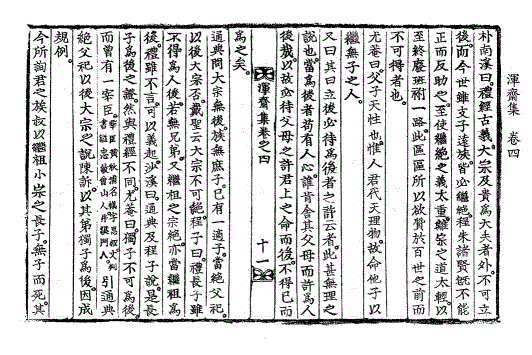 渾齋集 卷四
朴南溪曰禮經古義大宗及貴爲大夫者外不可立
後而今世雖支子遠族皆必繼絶程朱諸賢旣不能
正而反助之至使繼絶之義太重離宗之道太輕以
至終廢班祔一路此區區所以欲質於百世之前而
不可得者也
尤菴曰父子天性也惟人君代天理物故命他子以
繼無子之人
又曰其曰立後必待爲後者之許云者此甚無理之
說也當爲後者苟有人心誰肯舍其父母而許爲人
後哉以故必待父母之許君上之命而後不得已而
爲之矣
渾齋集卷之四
十一
通典問大宗無後族無庶子已有一適子當絶父祀
以後大宗否戴聖云大宗不可絶程子曰禮長子雖
不得爲人後若無兄弟又繼祖之宗絶亦當繼祖爲
後禮雖不言可以義起沙溪曰通典及程子說是長
子爲後之證然與禮經不同尤菴曰獨子不可爲後
而曾有一宰臣
引通典
絶父祀以後大宗之說陳訴以其弟獨子爲後因成
規例
今所詢君之族叔以繼祖小宗之長子無子而死其